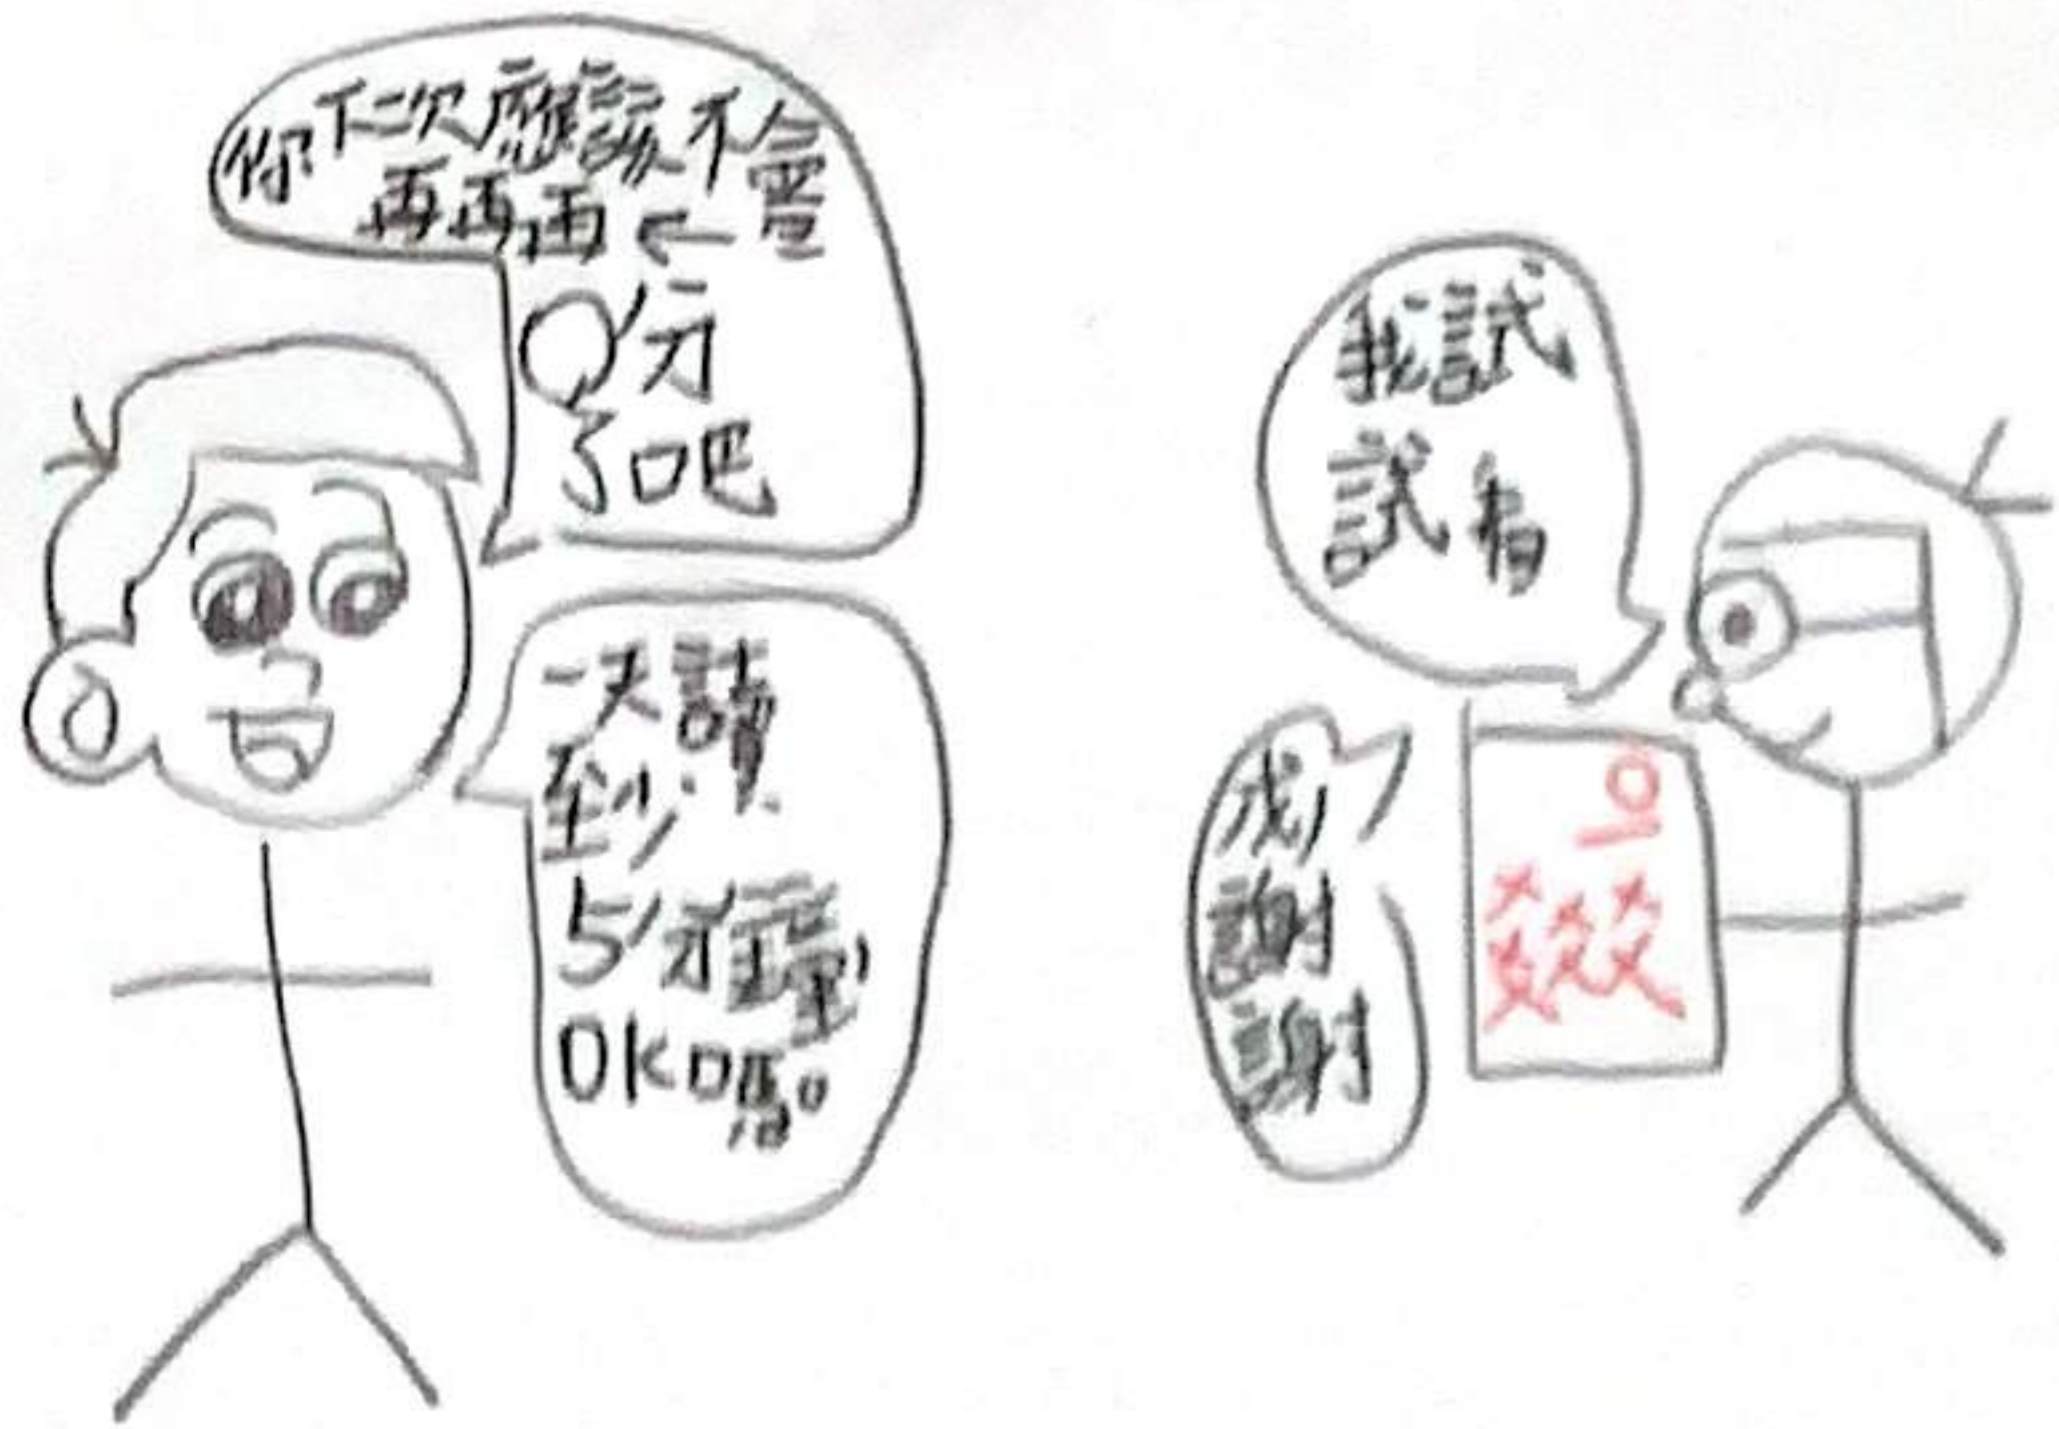 你下次應該不會
再再再←
0分
了吧
一天讀
至少
5分鐘
OK嗎?
我試
試看
我
謝
謝
0